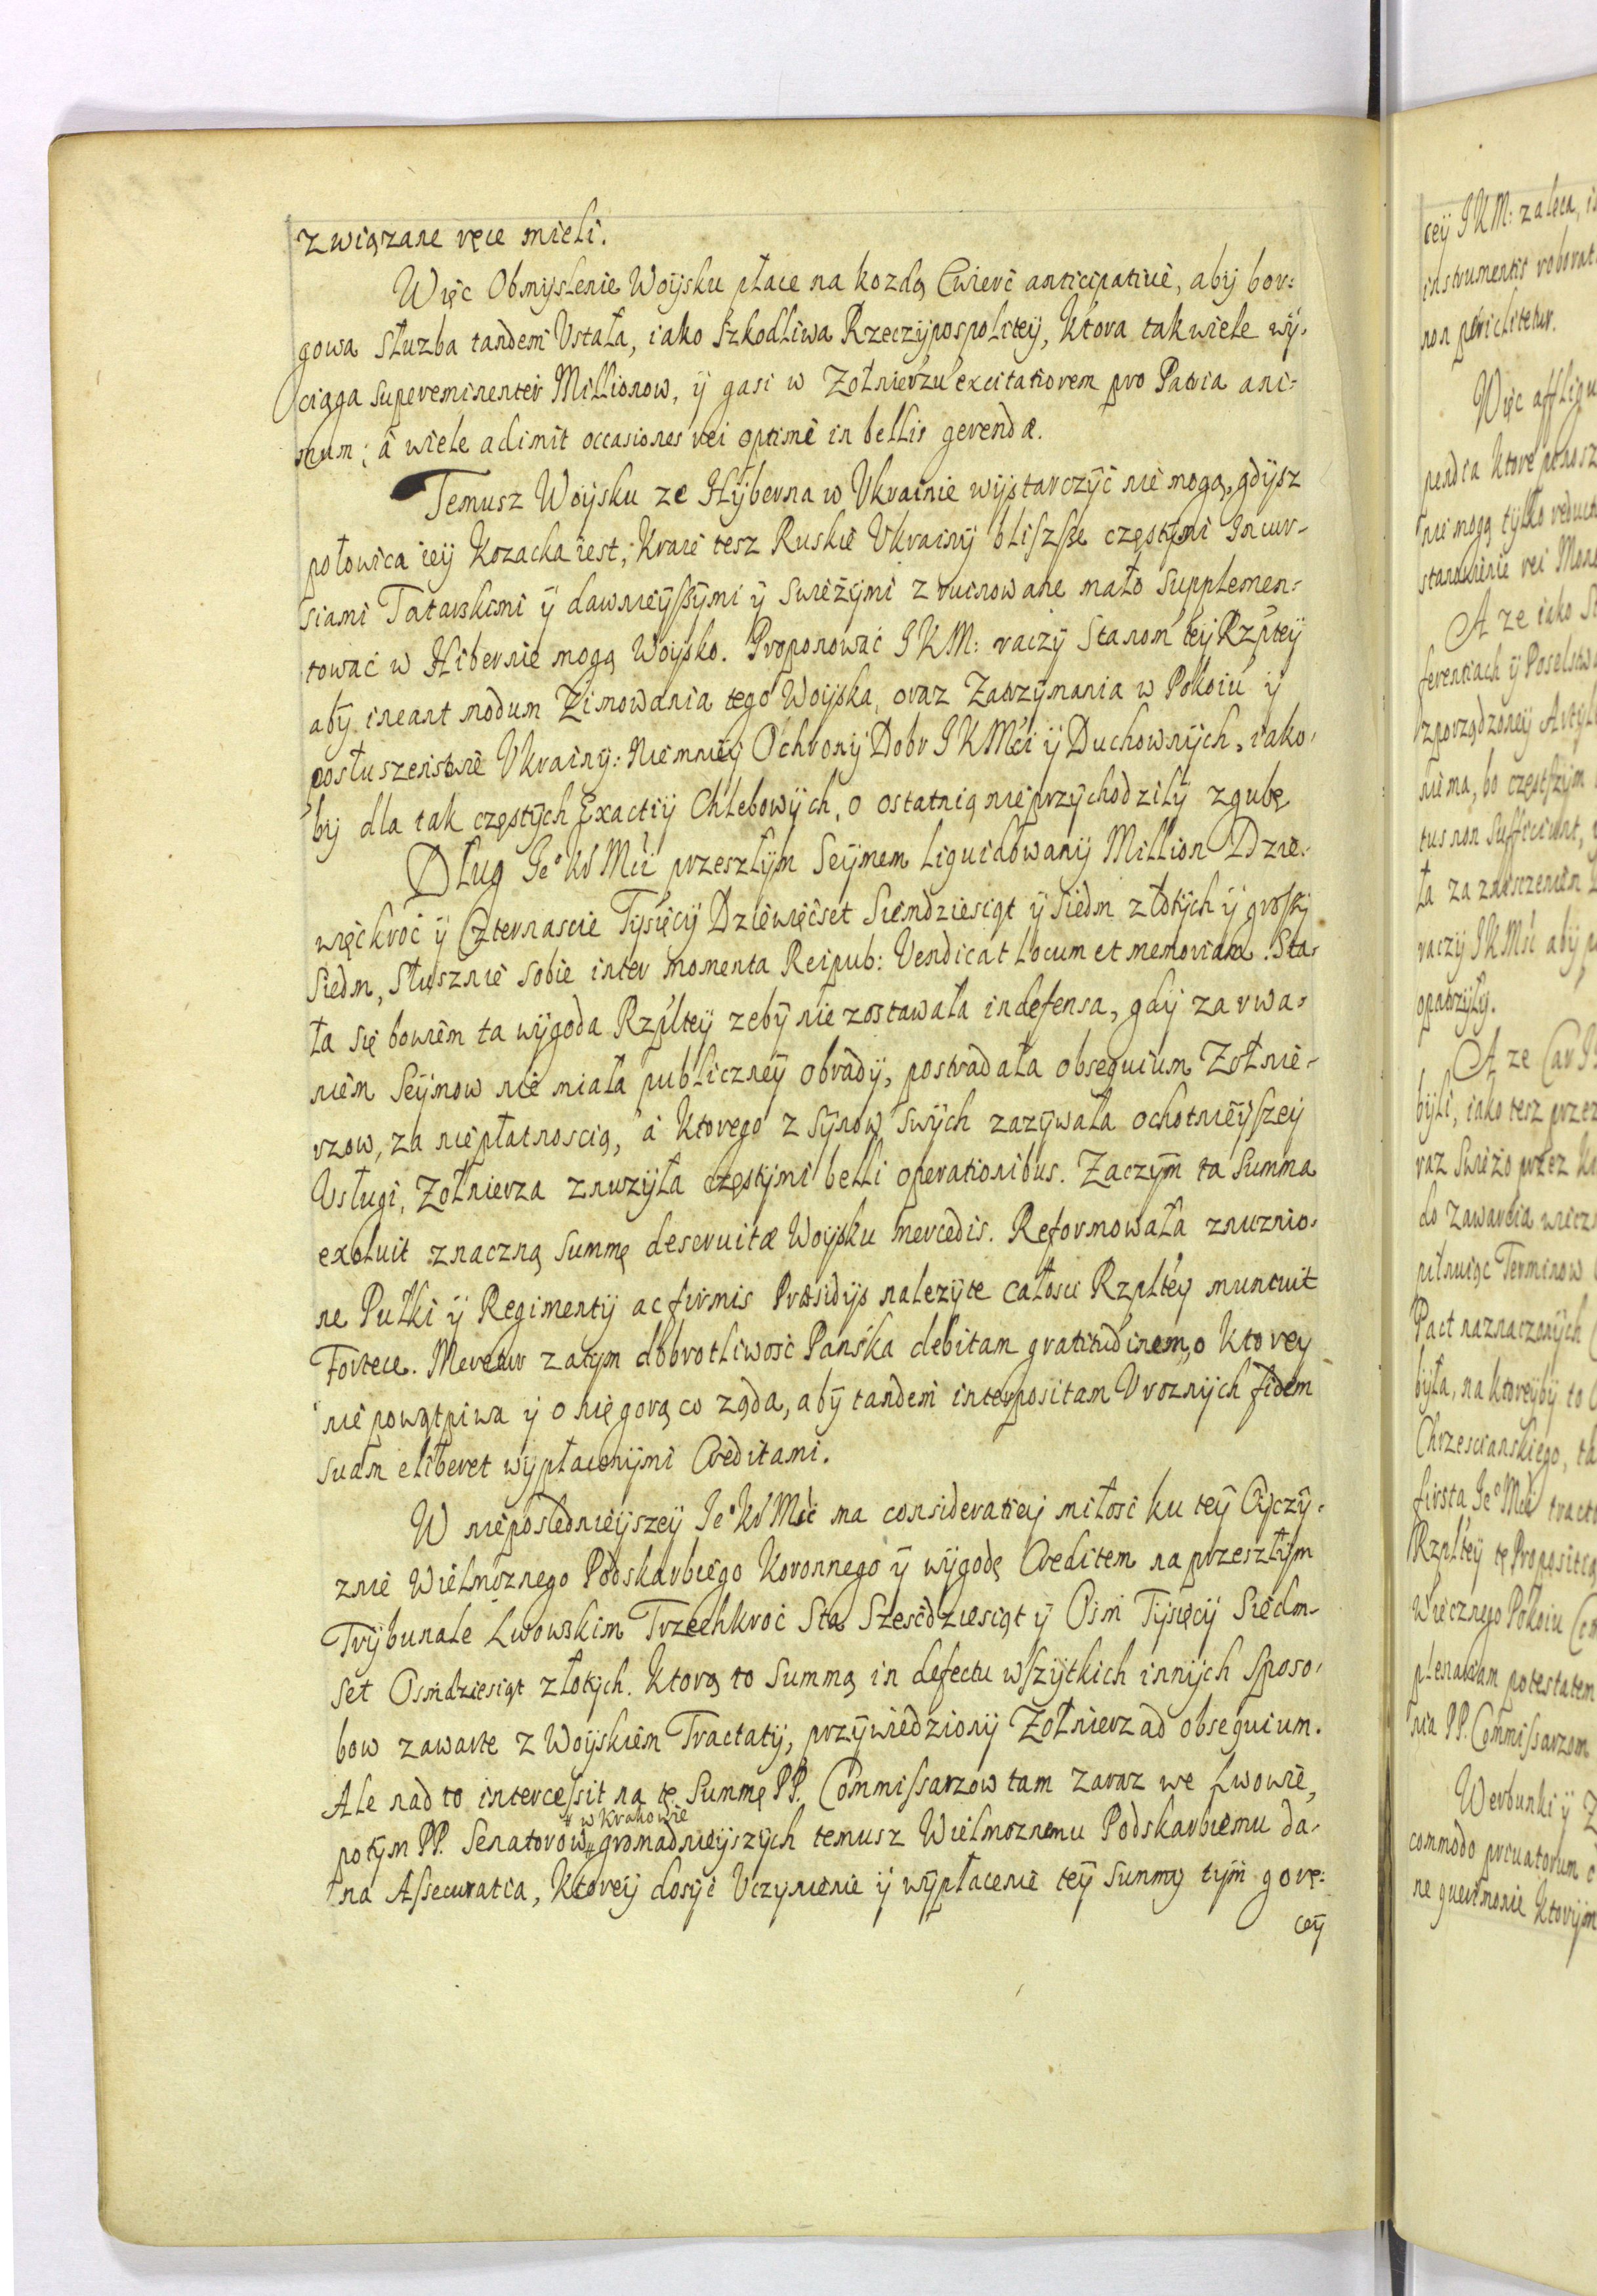 związane ręce mieli.
Więc Obmyslenie Woysku płace na kozdą Cwierć anticipativè, aby bor-
gowa słuzba tandem Vstała, iako szkodliwa Rzeczypospolitey, ktora tak wiele wy-
ciąga supereminenter Millionow, ÿ gasi w Zołnierzu excitatiorem pro Patria ani-
mum; à wiele adimit occasiones rei optimè in bellis gerendæ.
Temusz Woysku ze Hyberna w Vkrainie wystarczyć nie mogą, gdysz
połowica iey Kozacka iest, Kraie tesz Ruskie Vkrainy bliszsze częstymi Incur-
siami Tatarskimi ÿ dawnieyszymi ÿ swieżymi zruinowane mało supplemen-
tować w Hibernie mogą Woysko. Proponować I K M: raczy Stanom tey Rzptey
aby ineant modum Zimowania tego Woyska, oraz Zatrzymania w Pokoiu ÿ
posłuszenstwie Vkrainy: Niemniey Ochrony Dobr I K Mci ÿ Duchownych, iako-
by dla tak częstych Exactiy Chlebowych, o ostatnią nie przychodziły zgubę
Dług Ieº Kr Mci przeszłym Seymem liquidowany Million Dzie-
więckroć ÿ Czternascie Tysięcy Dziewięćset Siemdziesiąt ÿ siedm złotych ÿ groszy
Siedm, Słusznie sobie inter momenta Reipub: Vendicat locum et memoriam. Sta-
ła się bowiem ta wygoda Rzpltey zeby nie zostawała indefensa, gdy za rwa-
niem Seymow nie miała publiczney obrady, postradała obsequium Zołnie-
rzow, za niepłatnoscią, à ktorego z synow swych zazywała ochotnieyszey
Vsługi, Zołnierza znuzyła częstymi belli operationibus. Zaczym ta Summa
exoluit znaczną summę deseruitæ Woysku mercedis. Reformowała znuznio-
ne Pułki ÿ Regimenty ac firmis Præsidÿs nalezyte całosci Rzpltey muniuit
Fortece. Meretur zatym dobrotliwość Pańska debitam gratitudinem, o ktorey
nie powątpiwa ÿ o nię gorąco ząda, aby tandem interpositam Vroznych fidem
suam eliberet wypłaconymi Creditami.
W nieposlednieyszey Ieº Kr Mść ma consideratiey miłość ku tey Oyczy-
znie Wielmoznego Podskarbiego Koronnego ÿ wygodę Creditem na przeszłym
Trybunale Lwowskim Trzechkroć Sta Sześćdziesiąt ÿ Ośm Tysięcy Siedm-
set Osmdziesiąt złotych. Ktorą to summą in defectu wszytkich innych sposo-
bow zawarte z Woyskiem Tractaty, przywiedziony Zołnierz ad obsequium.
Ale nad to intercessit na tę Summę PP. Commissarzow tam zaraz we Lwowie,
w Krakowie
potym PP. Senatorow gromadnieyszych temusz Wielmoznemu Podskarbiemu da-
na Assecuratia, Ktorey dosyć Vczynienie ÿ wypłacenie tey summy tym gorę-
cey
cey I K M: zaleca,
instrumentis roborat
non periclitetur.
Więc
pendia ktore
nie mogą tylko
stanowienie rei
A ze iako
ferentiach ÿ Poselstw
zporządzoney
nie ma, bo częstszym
tus non sufficiunt,
ła za zniszczeniem
raczy I K Mść aby
opatrzyły.
A ze Car
byli, iako tesz przez
raz świeżo przez
do zawarcia
pilnuiąc Terminow
Pact naznaczonych
była, na ktoreyby to
Chrzescianskiego,
Ieº Mci
Rzpltey tę
Wiecznego Pokoiu
plenariam potestatem
nia PP. Commissarzom
Werbunki ÿ
commodo priuatorum
ne querimonie ktorym